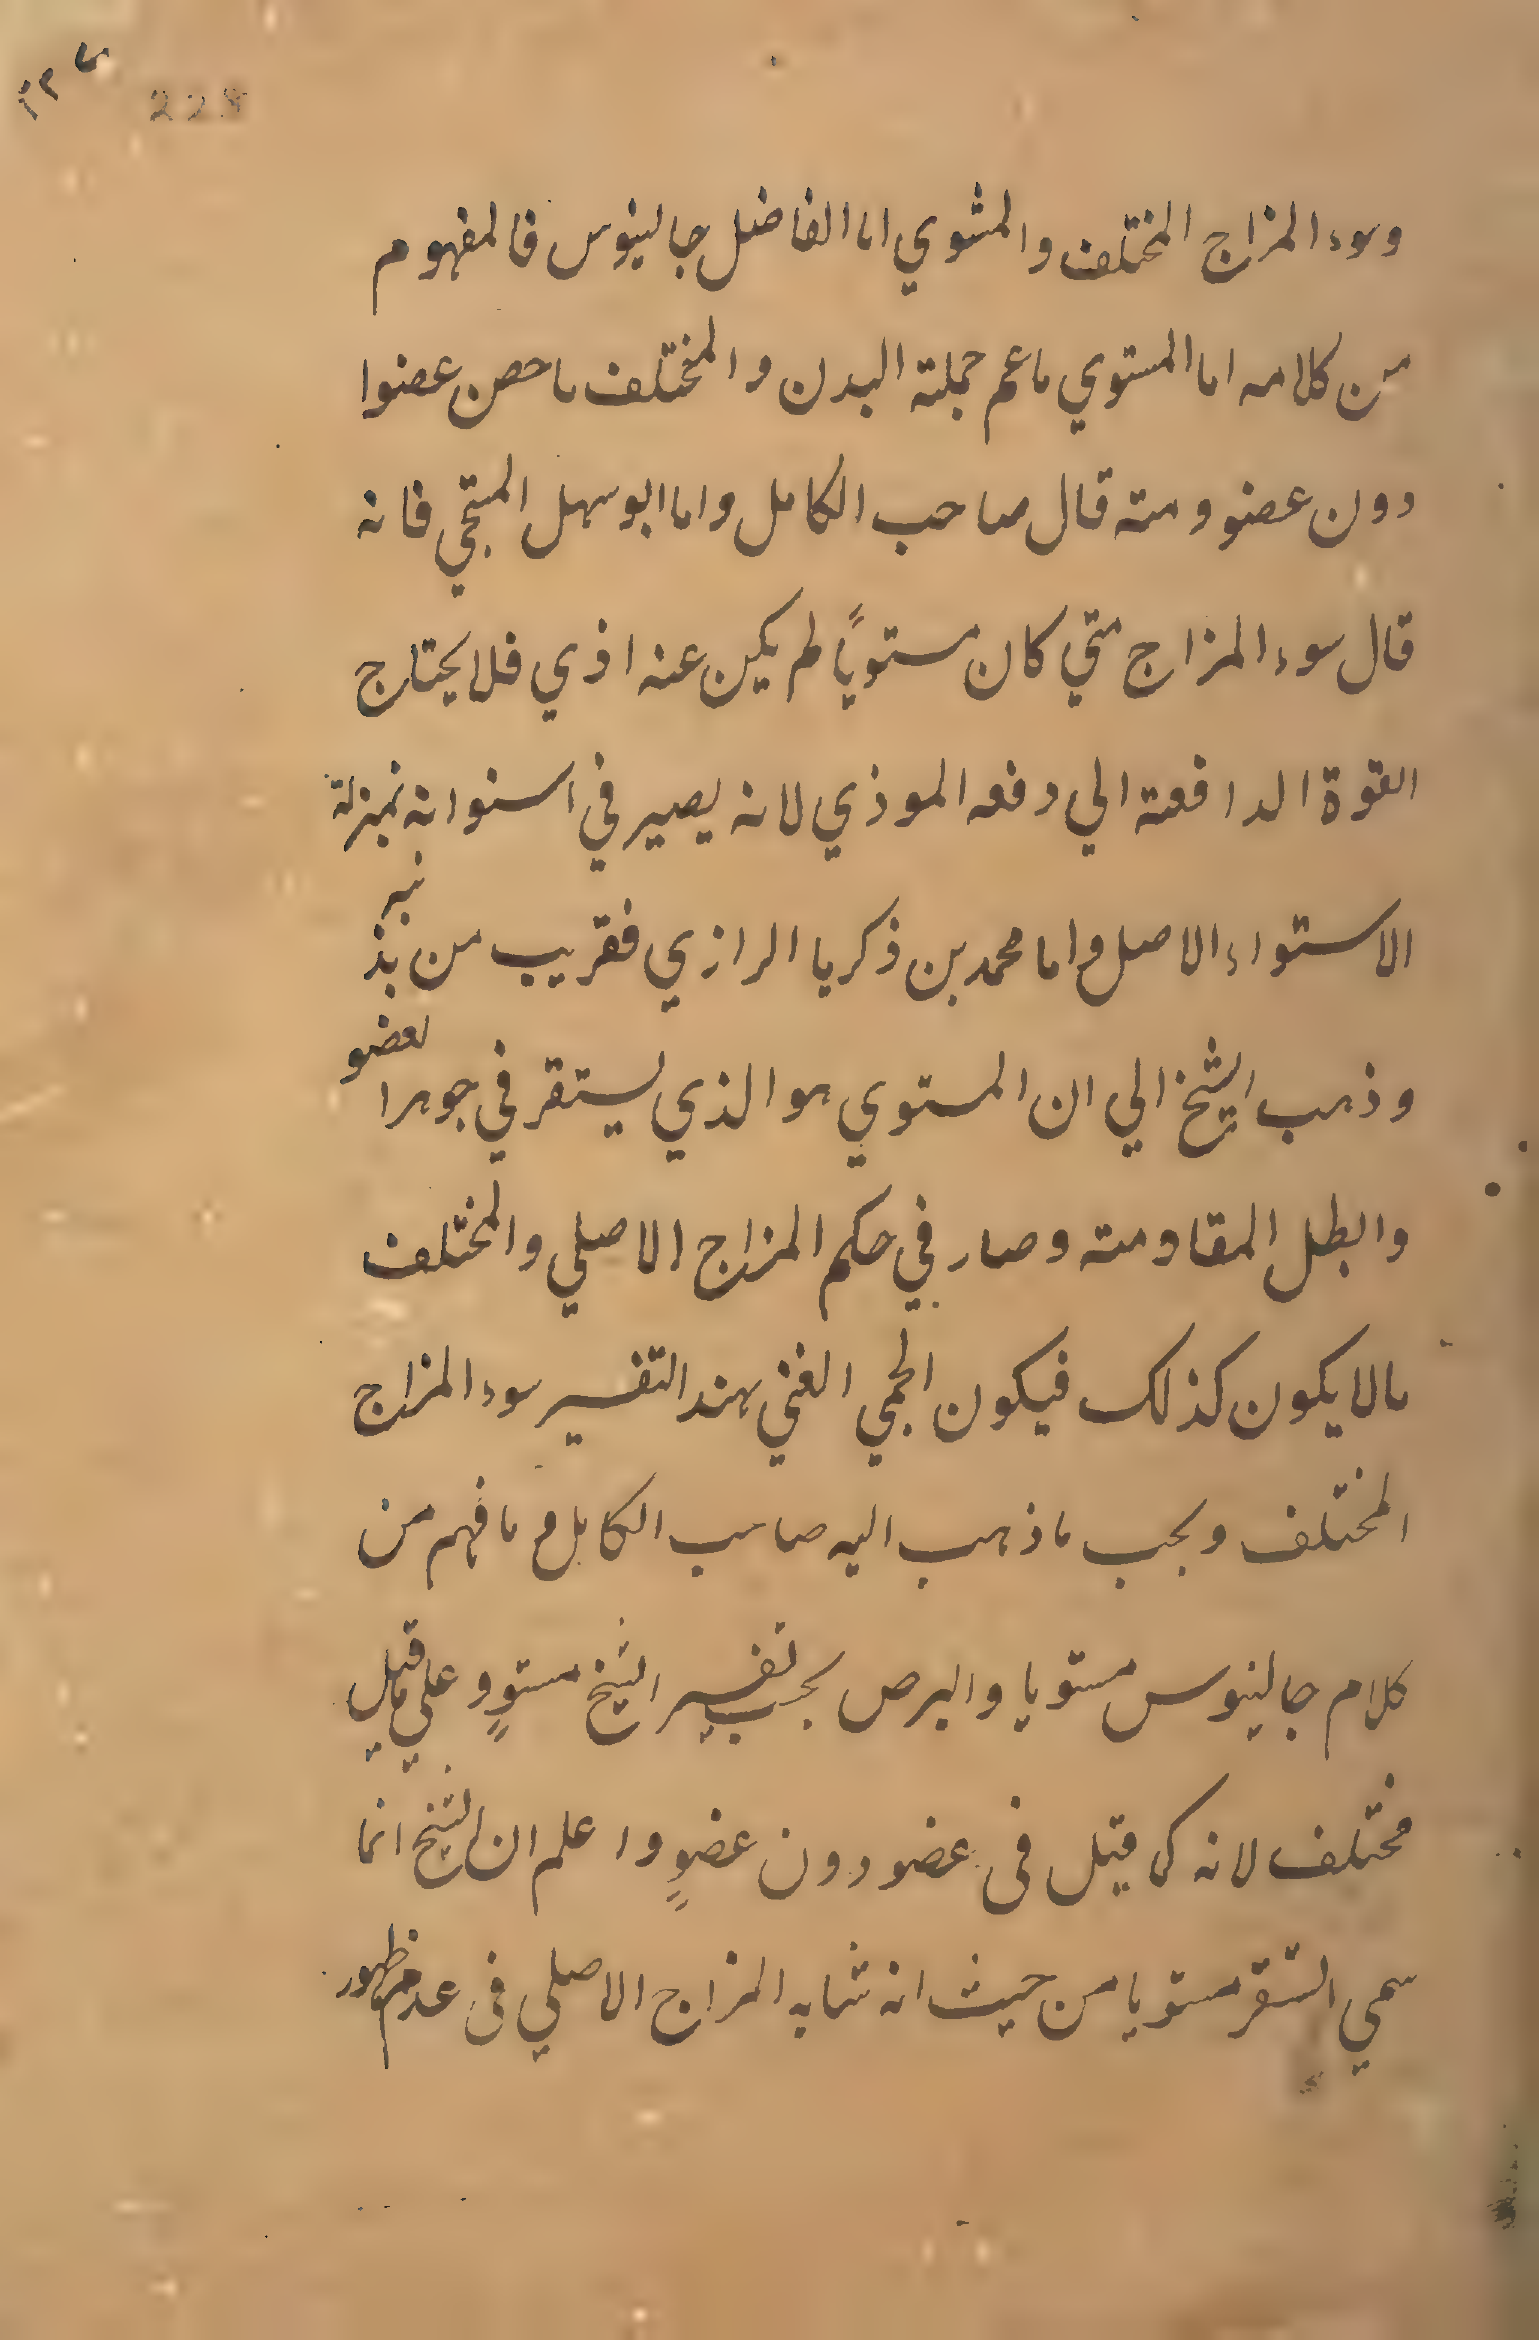 228
وسوء المزاج المختلف والمثوي اما الفاضل جالينوس فالمفهوم
من كلامه اما المستوي ماعم جملة البدن والمختلف ماحص عضوا
دون عضو ومنه قال صاحب الكامل واما ابوسهل المسيحي فانه
قال سوء المزاج متي كان مستويًا لم يكن عنه اذي فلا يحتاج
القوة الدافعة الي دفعه الموذي لانه يصير في استوائه بمنزلة
الاستواء الاصل واما محمد بن ذكريا الرازي فقريب من
وذهب الشيخ الي ان المستوي هو الذي يستقر في جوهر العضو
وابطل المقاومة وصار في حكم المزاج الاصلي والمختلف
مالا يكون كذلك فيكون الحمي الغني بهذا التفسير سوء المزاج
المختلف وبحسب ماذهب اليه صاحب الكامل وما فهم من
كلام جالينوس مستويا والبرص بحسب تفسير الشيخ مستوٍ وعلي ماقيل
مختلف لانه كما قيل فى عضو دون عضوٍ واعلم ان الشيخ انما
سمي المستقر مستويا من حيث انه شابه المزاج الاصلي فى عدم ظهور